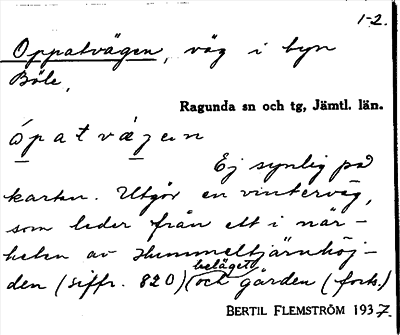 1-2.
Oppatvägen, väg i byn
Böle,
Ragunda sn och tg, Jämtl. län.
ópatvægen
Ej synlig på
kartan. Utgör en vinterväg,
som leder från ett i när-
heten av Hummeltjärnhöj-
den (siffr. 820) beläget
och gården (forts.)
BERTIL FLEMSTRÖM 1937.